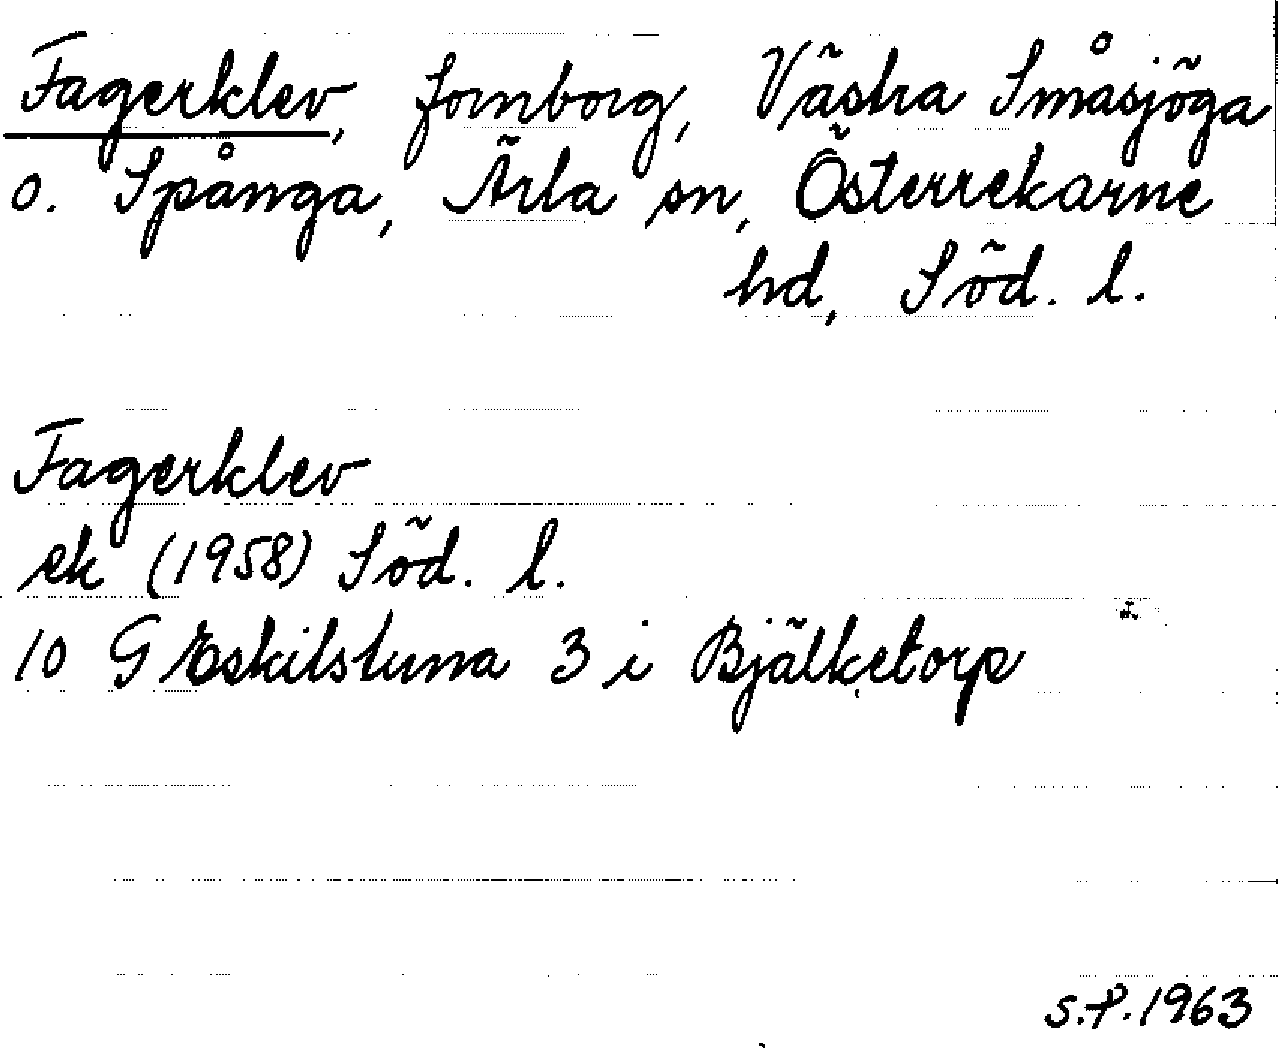 Fagerklev, fornborg, Västra Småsjöga
o. Spånga, Ärla sn, Österrekarne
hd, Söd. l.
Fagerklev
ek (1958) Söd. l.
10 G Eskilstuna 3 i Bjälketorp
S.P. 1963